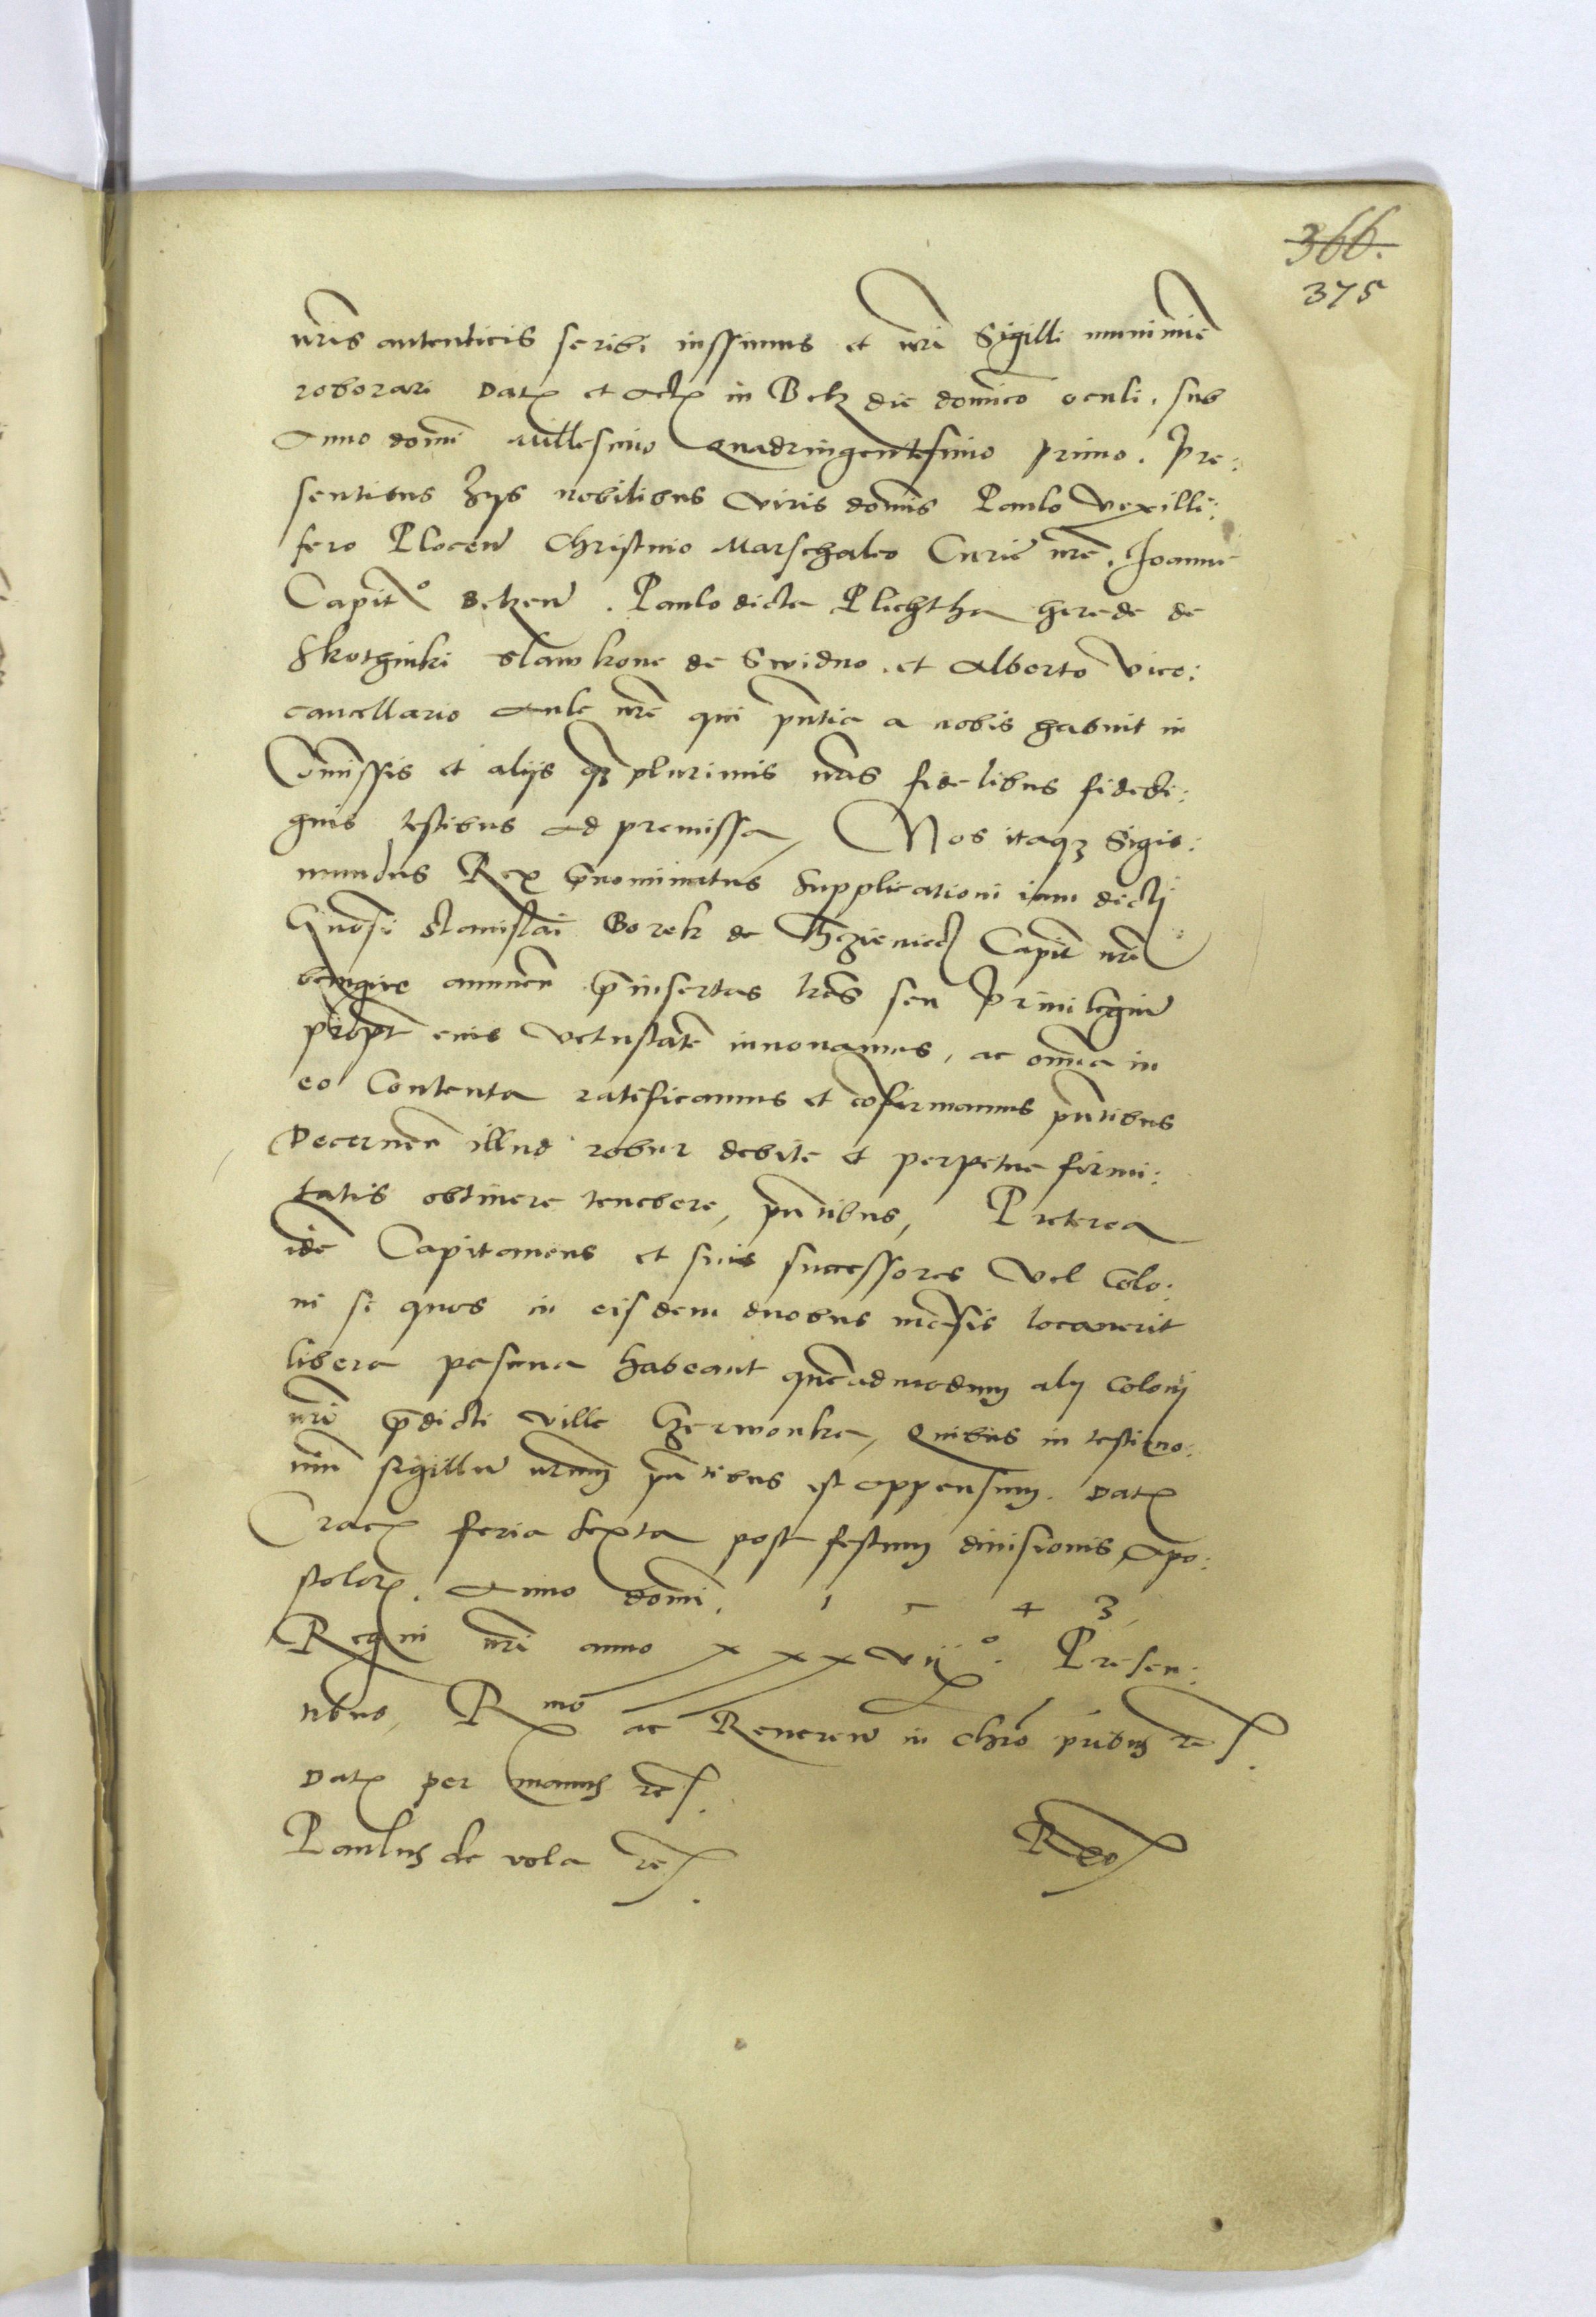 366.
375
nr̃is autenticis scribi iussimus et nr̃i Sigilli munimiē
roborari Datꝫ et Actꝫ in Belz die domico oculi. sub
Anno domi Millesimo Quadringentesimo primo. Pre:
sentibus hys nobilibus viris domis Paulo vexilli:
fero Plocen Christino Marschalco Curie nrē. Joanne
Capitº Belzen. Paulo dicto Plichtha herede de
Skothniki Slawkone de Swidno. et Alberto Vice:
cancellario Aule nrē qui pntia a nobis habuit in
Comissis et alijs qꝫ plurimis nrīs fidelibus fidedi:
gnis testibus ad premissa, Nos itaqꝫ Sigis:
mundus Rex prenominatus Supplicationi iam dicti
Gnosi Stanislai Borek de Capit nri
benigne annuen preinsertas lrās seu privilegiū
propt eius vetustatē innovamus, ac omīa in
eo Contenta ratificamus et cōfirmamus pntibus
Decernen illud robur debite et perpetue firmi:
tatis obtinere tenebere, pntibus, Preterea
idē Capitaneus et suis successores vel Colo:
ni si quos in eisdem duobus mansis locaverit
libera pascua habeant quēadmodum aly colonj
nri predicti ville Czerwonka, Quibus in testimo:
niū sigillū nrum pntibus est appensum. Datꝫ
Cracꝫ feria sexta post festum divisionis Apo:
stolorꝫ. Anno domi. 1 5 4 3,
Regni nri anno xxxvijº. Presen:
tibus, Rmo ac Reveren in Chro pribus rc.
Datꝫ per manus rc.
Paulus de vola rc.